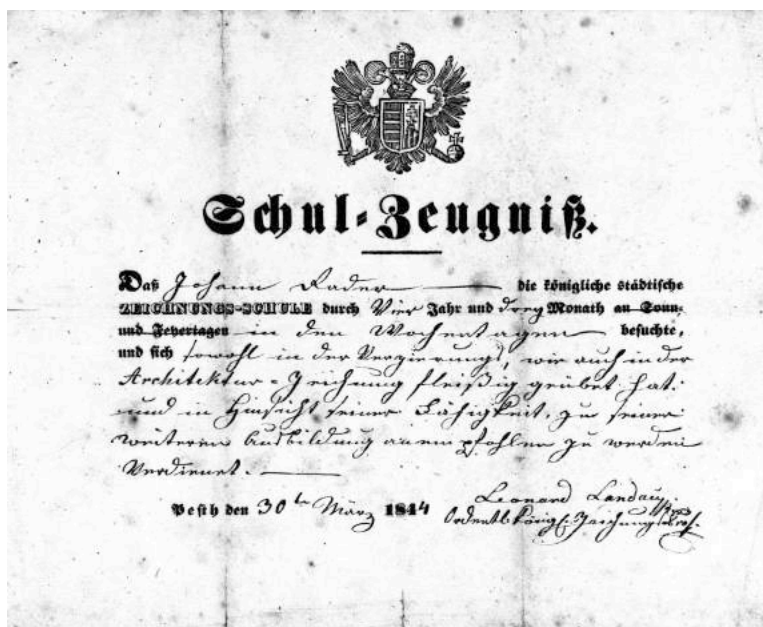 Schul-Zeugniß.
Daß Johann Rader die königliche städtische
ZEICHNUNGS-SCHULE durch Vier Jahr und drey Monath an Sonn-
und Feyertagen in den Wochentagen besuchte,
und sich sowohl in der Verzierungs, wie auch in der
Architektur-Zeichnung fleißig geübet hat.
und in Hinsicht seiner Fähigkeit, zu seiner
weiteren Ausbildung anempfohlen zu werden
Verdienet.
Pesth den 30ten März 1844
Leonard Landau
Ordentl. königl. Zeichnungs Prof.